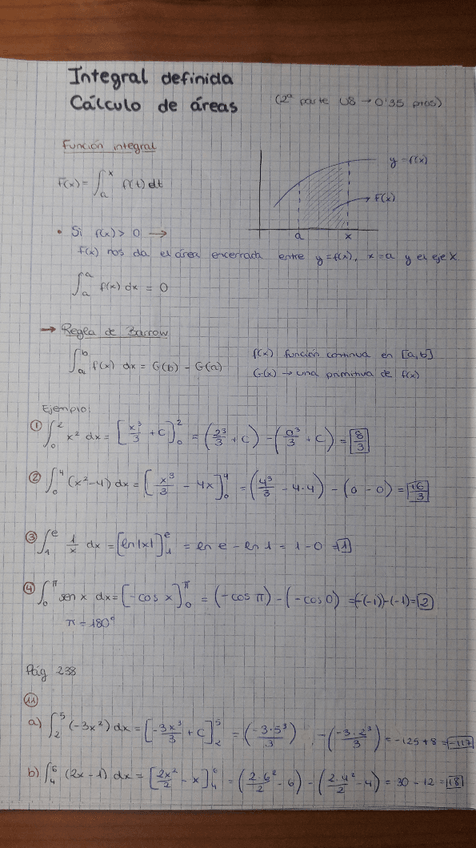 Integral definida
Cálculo de áreas (2ª parte U8 → 0'35 ptos)
Función integral
y=f(x)
F(x) = ∫ₐˣ f(t) dt
F(x)
a x
• Si f(x) > 0 →
f(x) nos da el área encerrada entre y=f(x), x=a y el eje X
∫ₐᵃ f(x) dx = 0
→ Regla de Barrow
∫ₐᵇ f(x) dx = G(b) - G(a) f(x) función continua en [a,b]
G(x) → una primitiva de f(x)
Ejemplo:
① ∫₀² x² dx = [x³/3 + C]₀² = (2³/3 + C) - (0³/3 + C) = 8/3
② ∫₀⁴ (x²-4) dx = [x³/3 - 4x]₀⁴ = (4³/3 - 4·4) - (0 - 0) = 16/3
③ ∫₁ᵉ 1/x dx = [ln|x|]₁ᵉ = ln e - ln 1 = 1 - 0 = 1
④ ∫₀^π sen x dx = [-cos x]₀^π = (-cos π) - (-cos 0) = -(-1)-(-1) = 2
π = 180°
Pág 238
⑪
a) ∫₂⁵ (-3x²) dx = [-3x³/3 + C]₂⁵ = (-3·5³/3) - (-3·2³/3) = -125+8 = -117
b) ∫₄⁶ (2x-1) dx = [2x²/2 - x]₄⁶ = (2·6²/2 - 6) - (2·4²/2 - 4) = 30 - 12 = 18